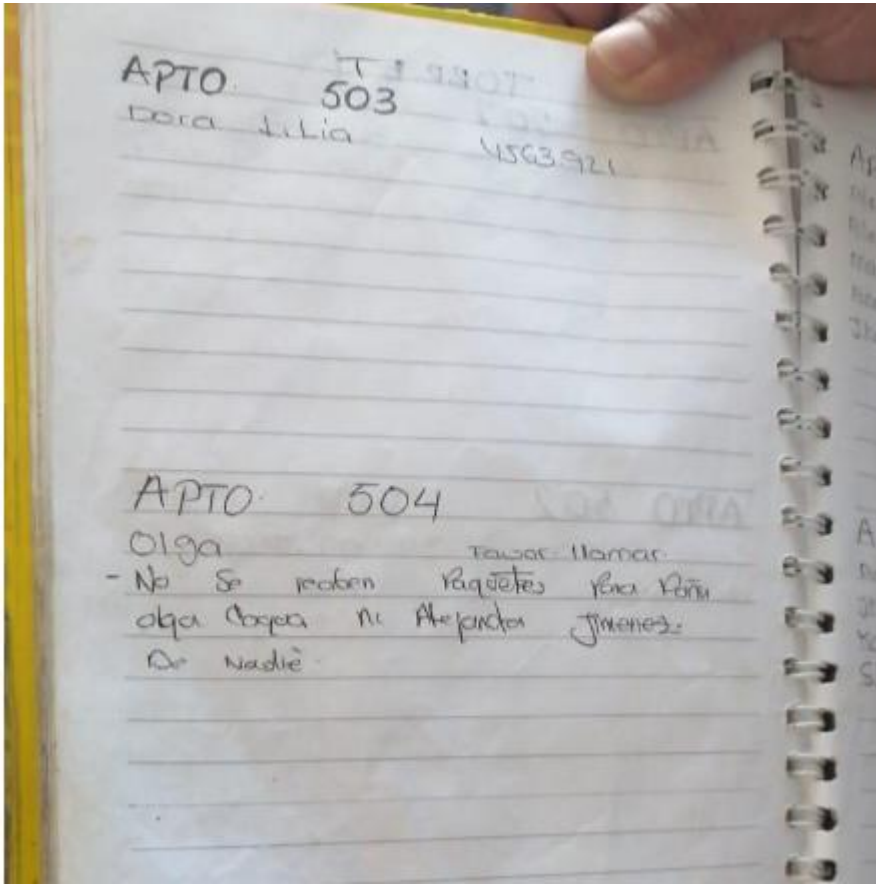 APTO. T 1
503
Dora Lilia 4563921
APTO. 504
Olga Favor llamar
- No Se reciben Paquetes Para Doña
olga ni Alejandra Jimenez.
De Nadie.